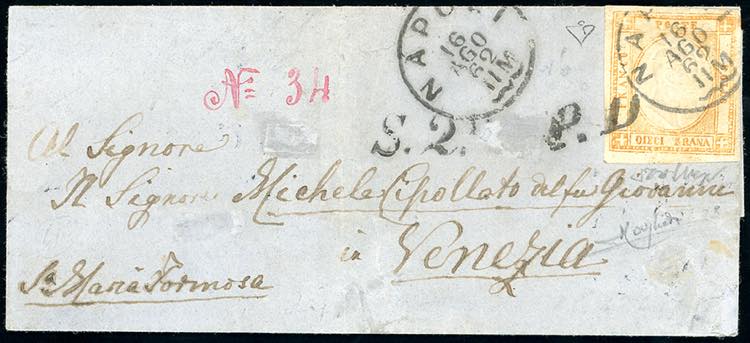 NAPOLI
16
AGO
62
11 M
NAPOLI
16
AGO
62
11 M
POSTE
DIECI GRANA
Nº 34
S. 2.
P. D
Al Signore
Il Signor Michele Cipollato del fu Giovanni
in Venezia
Sª Maria Formosa